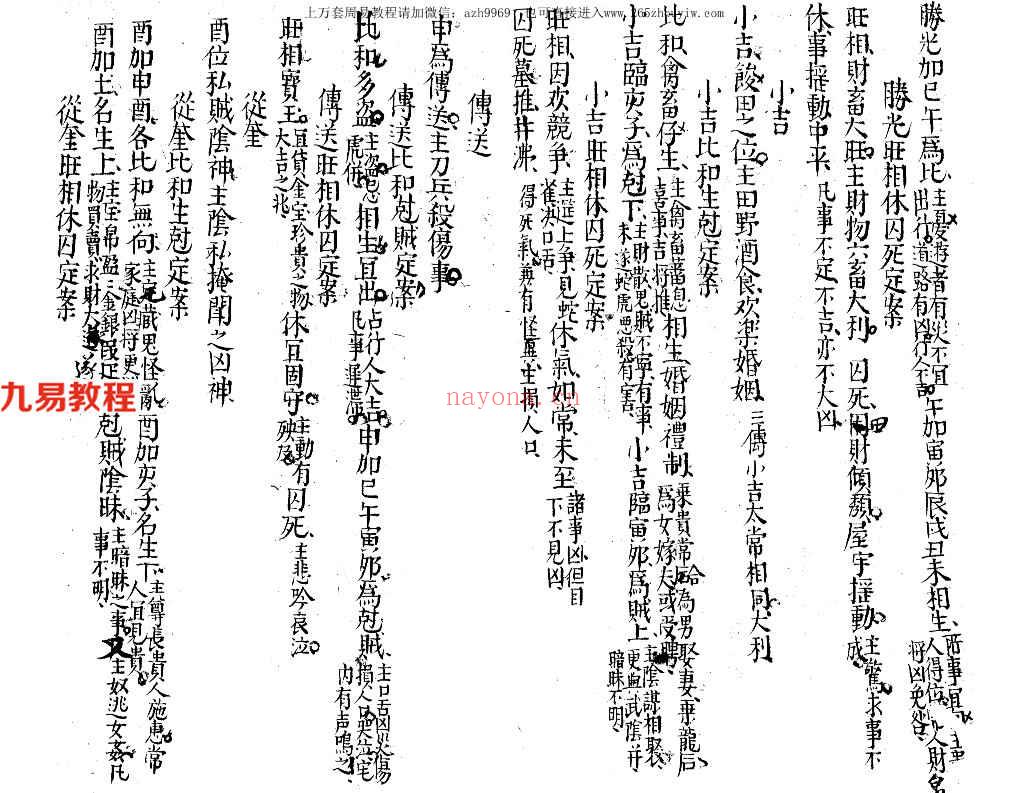 上万套周易教程请加微信：azh9969 也可直接进入www.265zhouyiw.com
勝光加巳午爲比
出行道路有凶
午加寅夘辰戌丑未相生
所事宜
將凶免咎
勝光旺相休囚死定案
旺相財畜大旺主財物六畜大利
囚死
財傾頹屋宇搖動
主驚求事不成
休事搖動中平
凡事不定不吉亦不大凶
小吉
小吉酸田之位主田野酒食欢楽婚姻
三傳小吉太常相同大利
小吉比和生尅定案
比和禽畜仔生
主禽畜蕃息
喜事吉將推
相生婚姻禮制
乗貴常
爲女嫁夫或受聘
爲男娶妻乗龍后
小吉臨亥子爲尅下
主財散鬼賊不寧有事
未遂蛇虎惡殺有害
小吉臨寅夘爲賊上
主陰謀相娶
更與武陰并
暗昧不明
小吉旺相休囚死定案
旺相因欢競争
主筵上争見蛇
雀爲口舌
休氣如常未至
諸事凶但目
下不見凶
囚死墓推井
得死氣兼有怪異主損人口
傳送
申爲傳送主刀兵殺傷事
傳送比和尅賊定案
比和多盗
主盗息
虎併
相生宜出
占行人大吉
凡事遲滞
申加巳午寅夘爲尅賊
主口舌凶災傷
損人口哭泣宅
内有声鳴之
傳送旺相休囚定案
旺相寳主
宜貸金宝珍貴之物
大吉之兆
休宜固守
主動有
殃及
囚死
主悲吟哀泣
從奎
酉位私賊陰神主陰私掩閉之凶神
從奎比和生尅定案
酉加申酉各比和無向
主宅藏鬼怪亂
家庭凶將更
酉加亥子名生下
主尊長貴人施惠常
人宜見貴
酉加土名生上
主宝帛盈金銀
物買賣求財大遂
尅賊陰昧
主暗昧之事又主奴逃女姦凡
事不明
從奎旺相休囚定案
九易教程
nayona.cn